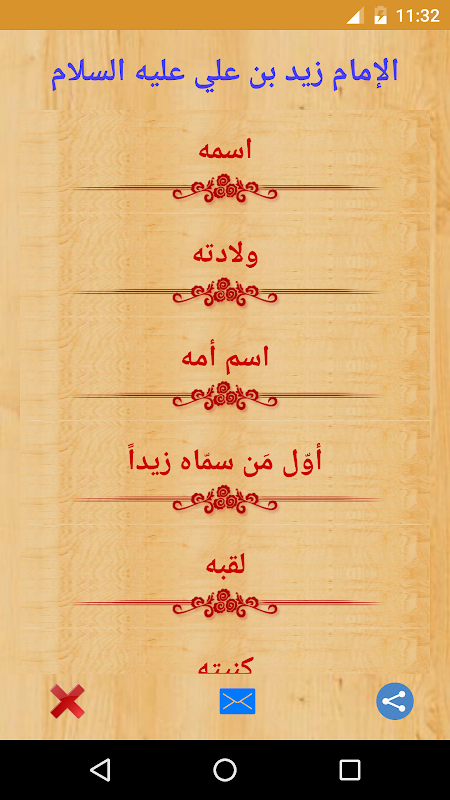 11:32
الإمام زيد بن علي عليه السلام
اسمه
ولادته
اسم أمه
أوّل مَن سمّاه زيداً
لقبه
كنيته